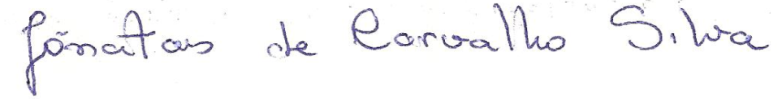 Jônatas de Carvalho Silva